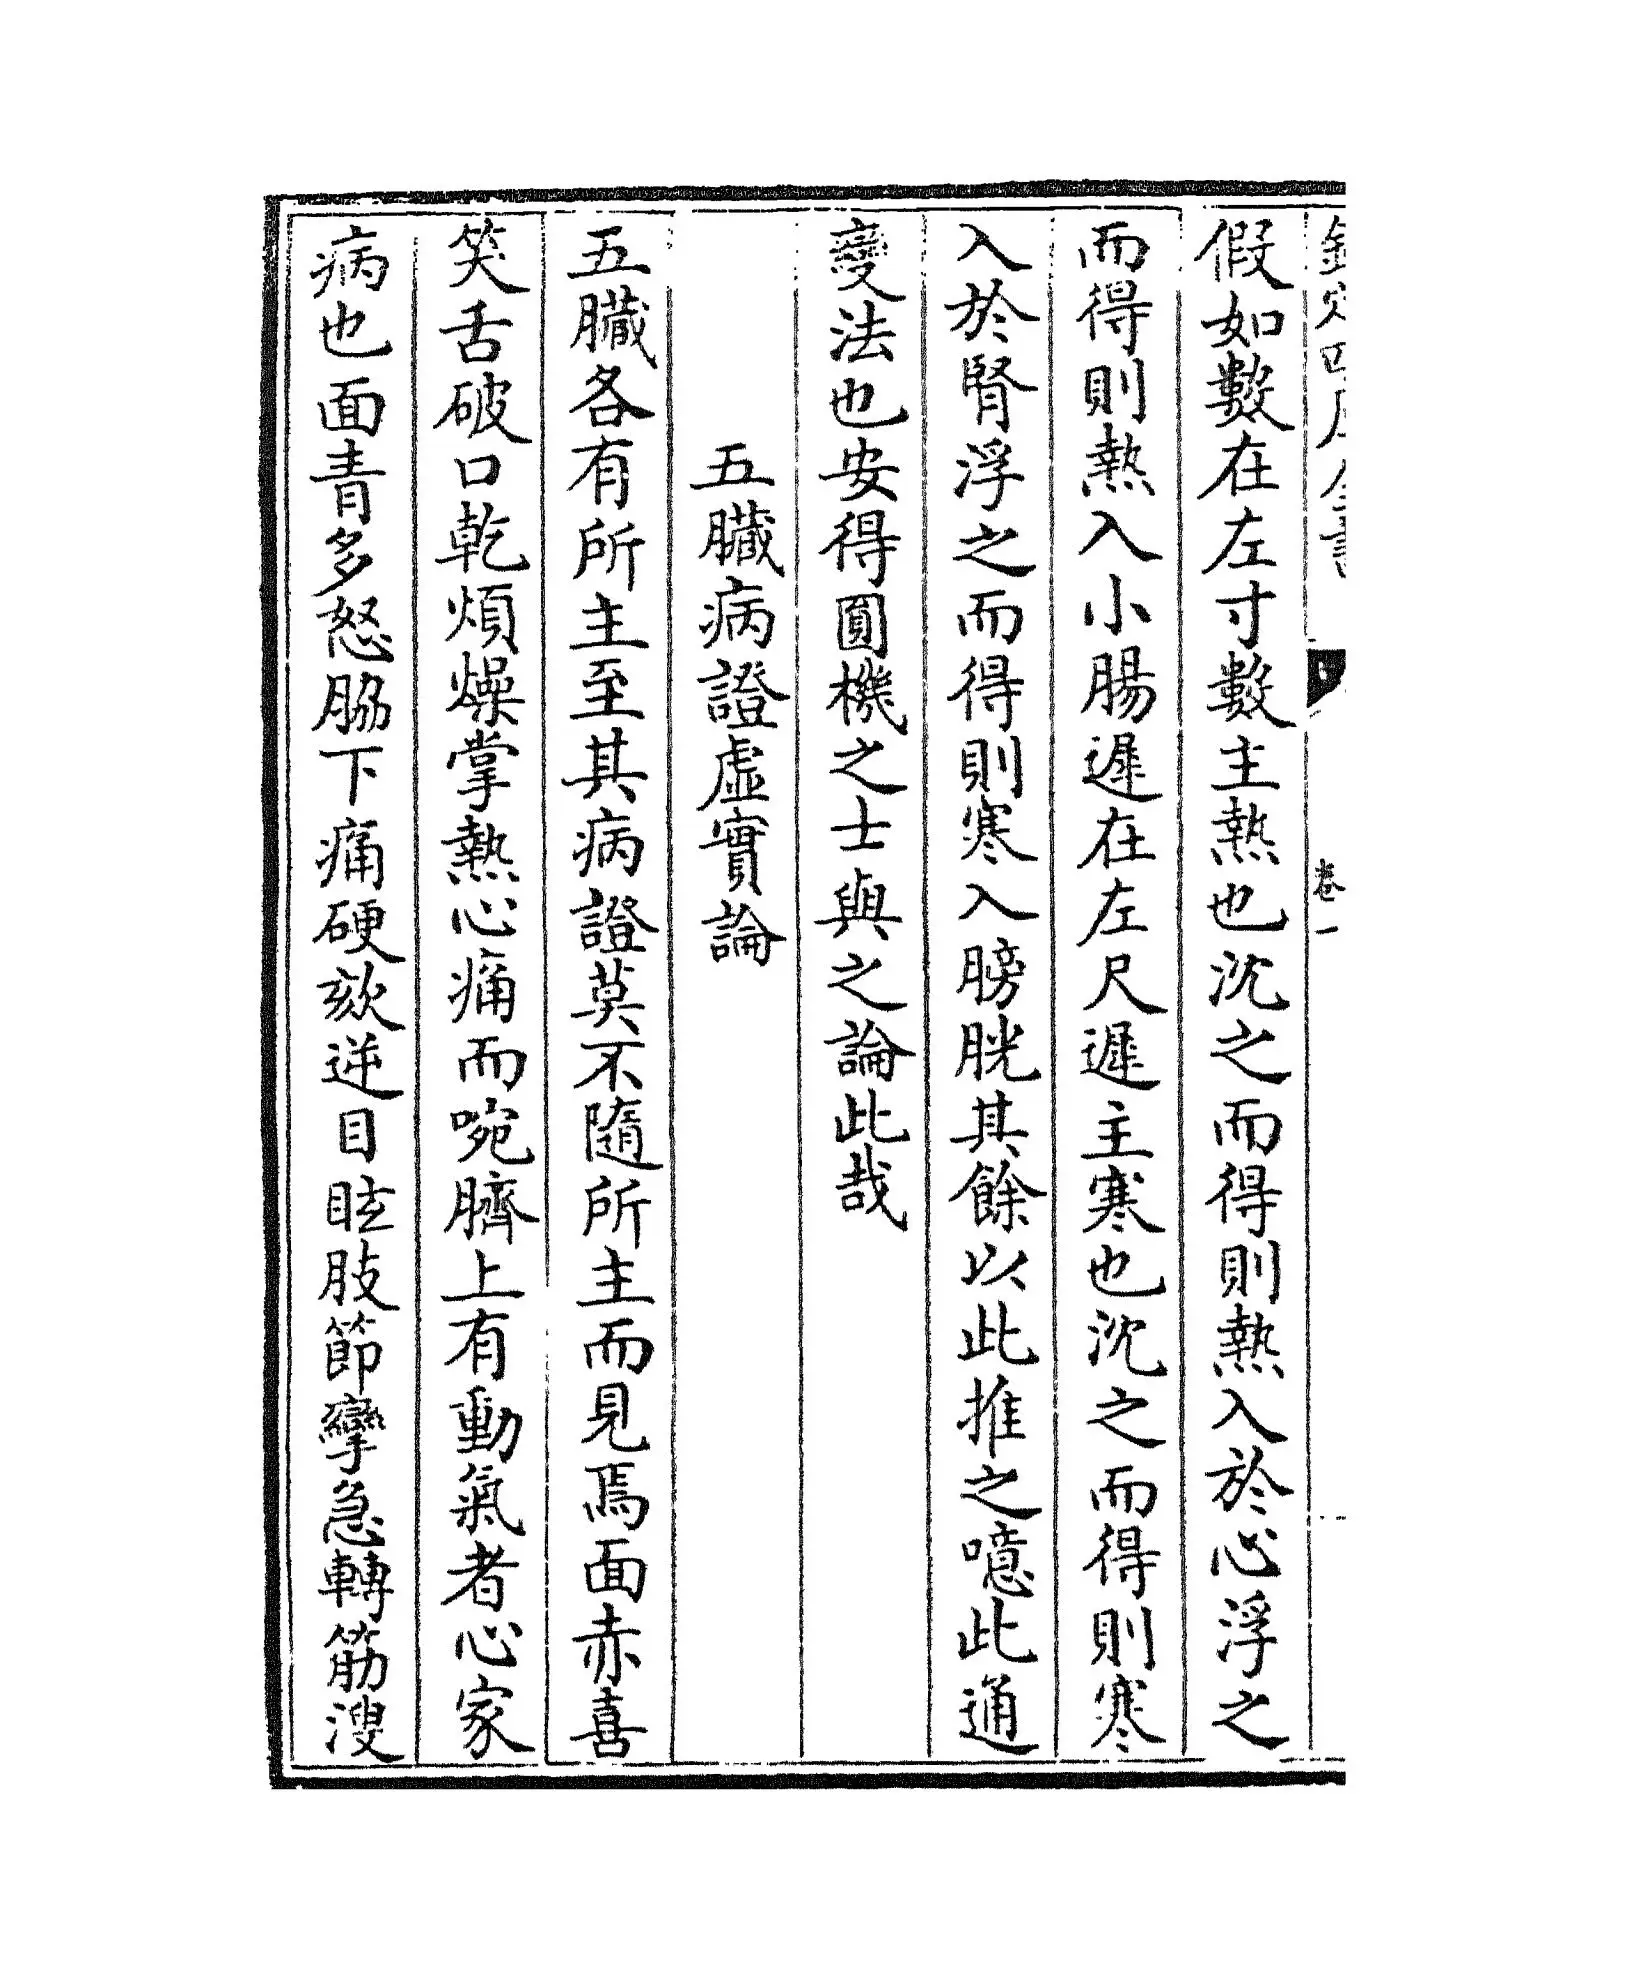 欽定四庫全書 卷一
假如數在左寸數主熱也沈之而得則熱入於心浮之
而得則熱入小腸遲在左尺遲主寒也沈之而得則寒
入於腎浮之而得則寒入膀胱其餘以此推之噫此通
變法也安得圓機之士與之論此哉
五臟病證虛實論
五臟各有所主至其病證莫不隨所主而見焉面赤喜
笑舌破口乾煩燥掌熱心痛而啘臍上有動氣者心家
病也面青多怒脇下痛硬欬逆目眩肢節攣急轉筋溲